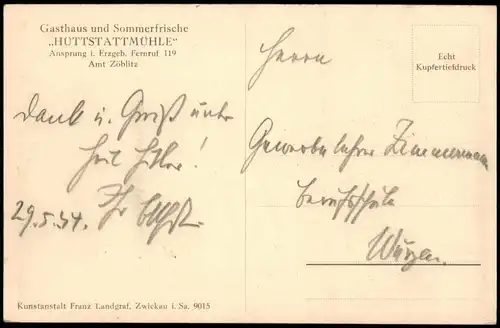 Gasthaus und Sommerfrische
„HÜTTSTATTMÜHLE"
Ansprung i. Erzgeb. Fernruf 119
Amt Zöblitz
Echt
Kupfertiefdruck
Herrn
Dank u. Gruß unter
Heil Hitler!
Ihr
29.5.34.
Gewerbelehrer Zimmermann
Berufsschule
Wurzen
Kunstanstalt Franz Landgraf, Zwickau i. Sa. 9015